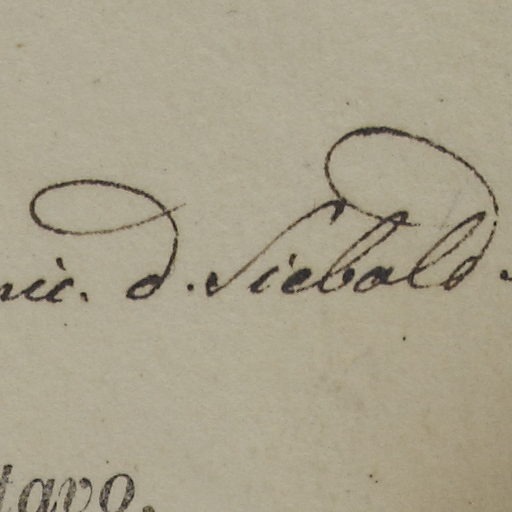 nic. d. Siebold.
tavo.